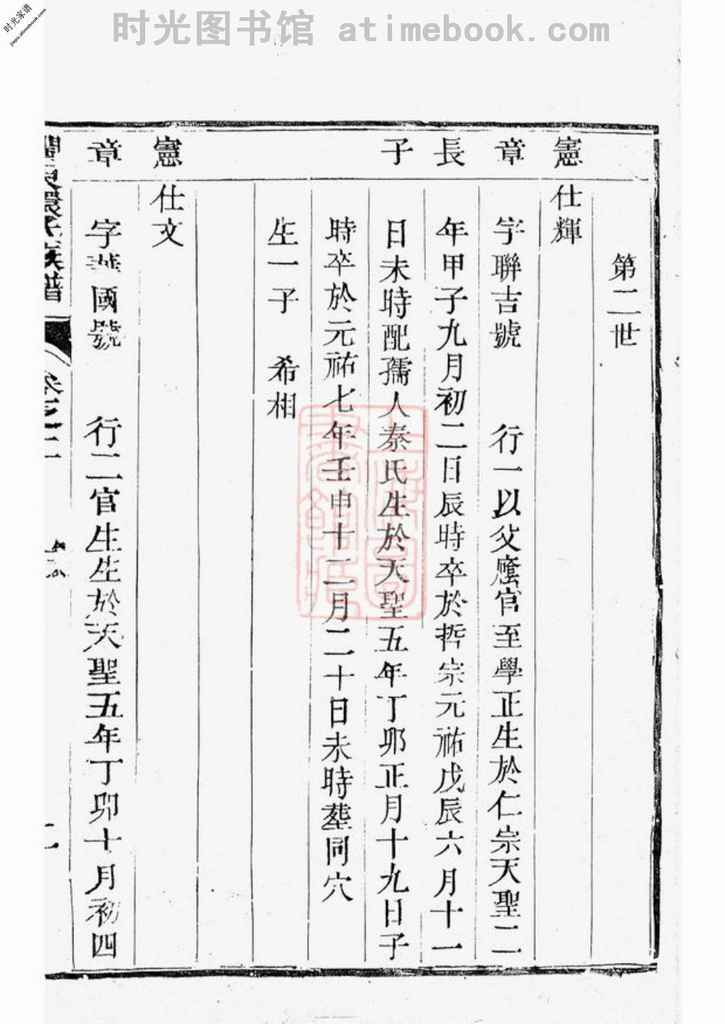 时光图书馆 atimebook.com
时光家谱
第二世
憲 仕輝
章 字聯吉號 行一以父廕官至學正生於仁宗天聖二
長 年甲子九月初二日辰時卒於哲宗元祐戊辰六月十一
子 日未時配孺人秦氏生於天聖五年丁卯正月十九日子
時卒於元祐七年壬申十二月二十日未時塟同穴
生一子 希相
憲 仕文
章 字華國號 行二官生生於天聖五年丁卯十月初四
族譜